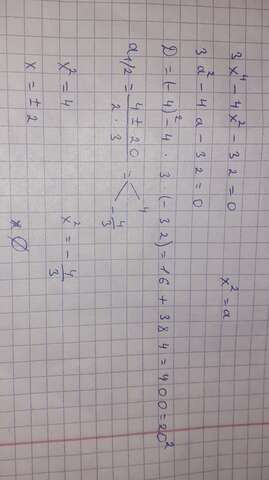 3x⁴ - 4x² - 32 = 0 x² = a
3a² - 4a - 32 = 0
D = (-4)² - 4 · 3 · (-32) = 16 + 384 = 400 = 20²
a₁/₂ = (4 ± 20)/(2 · 3) = 4
-4/3
x² = 4 x² = -4/3
x = ±2 x ∅